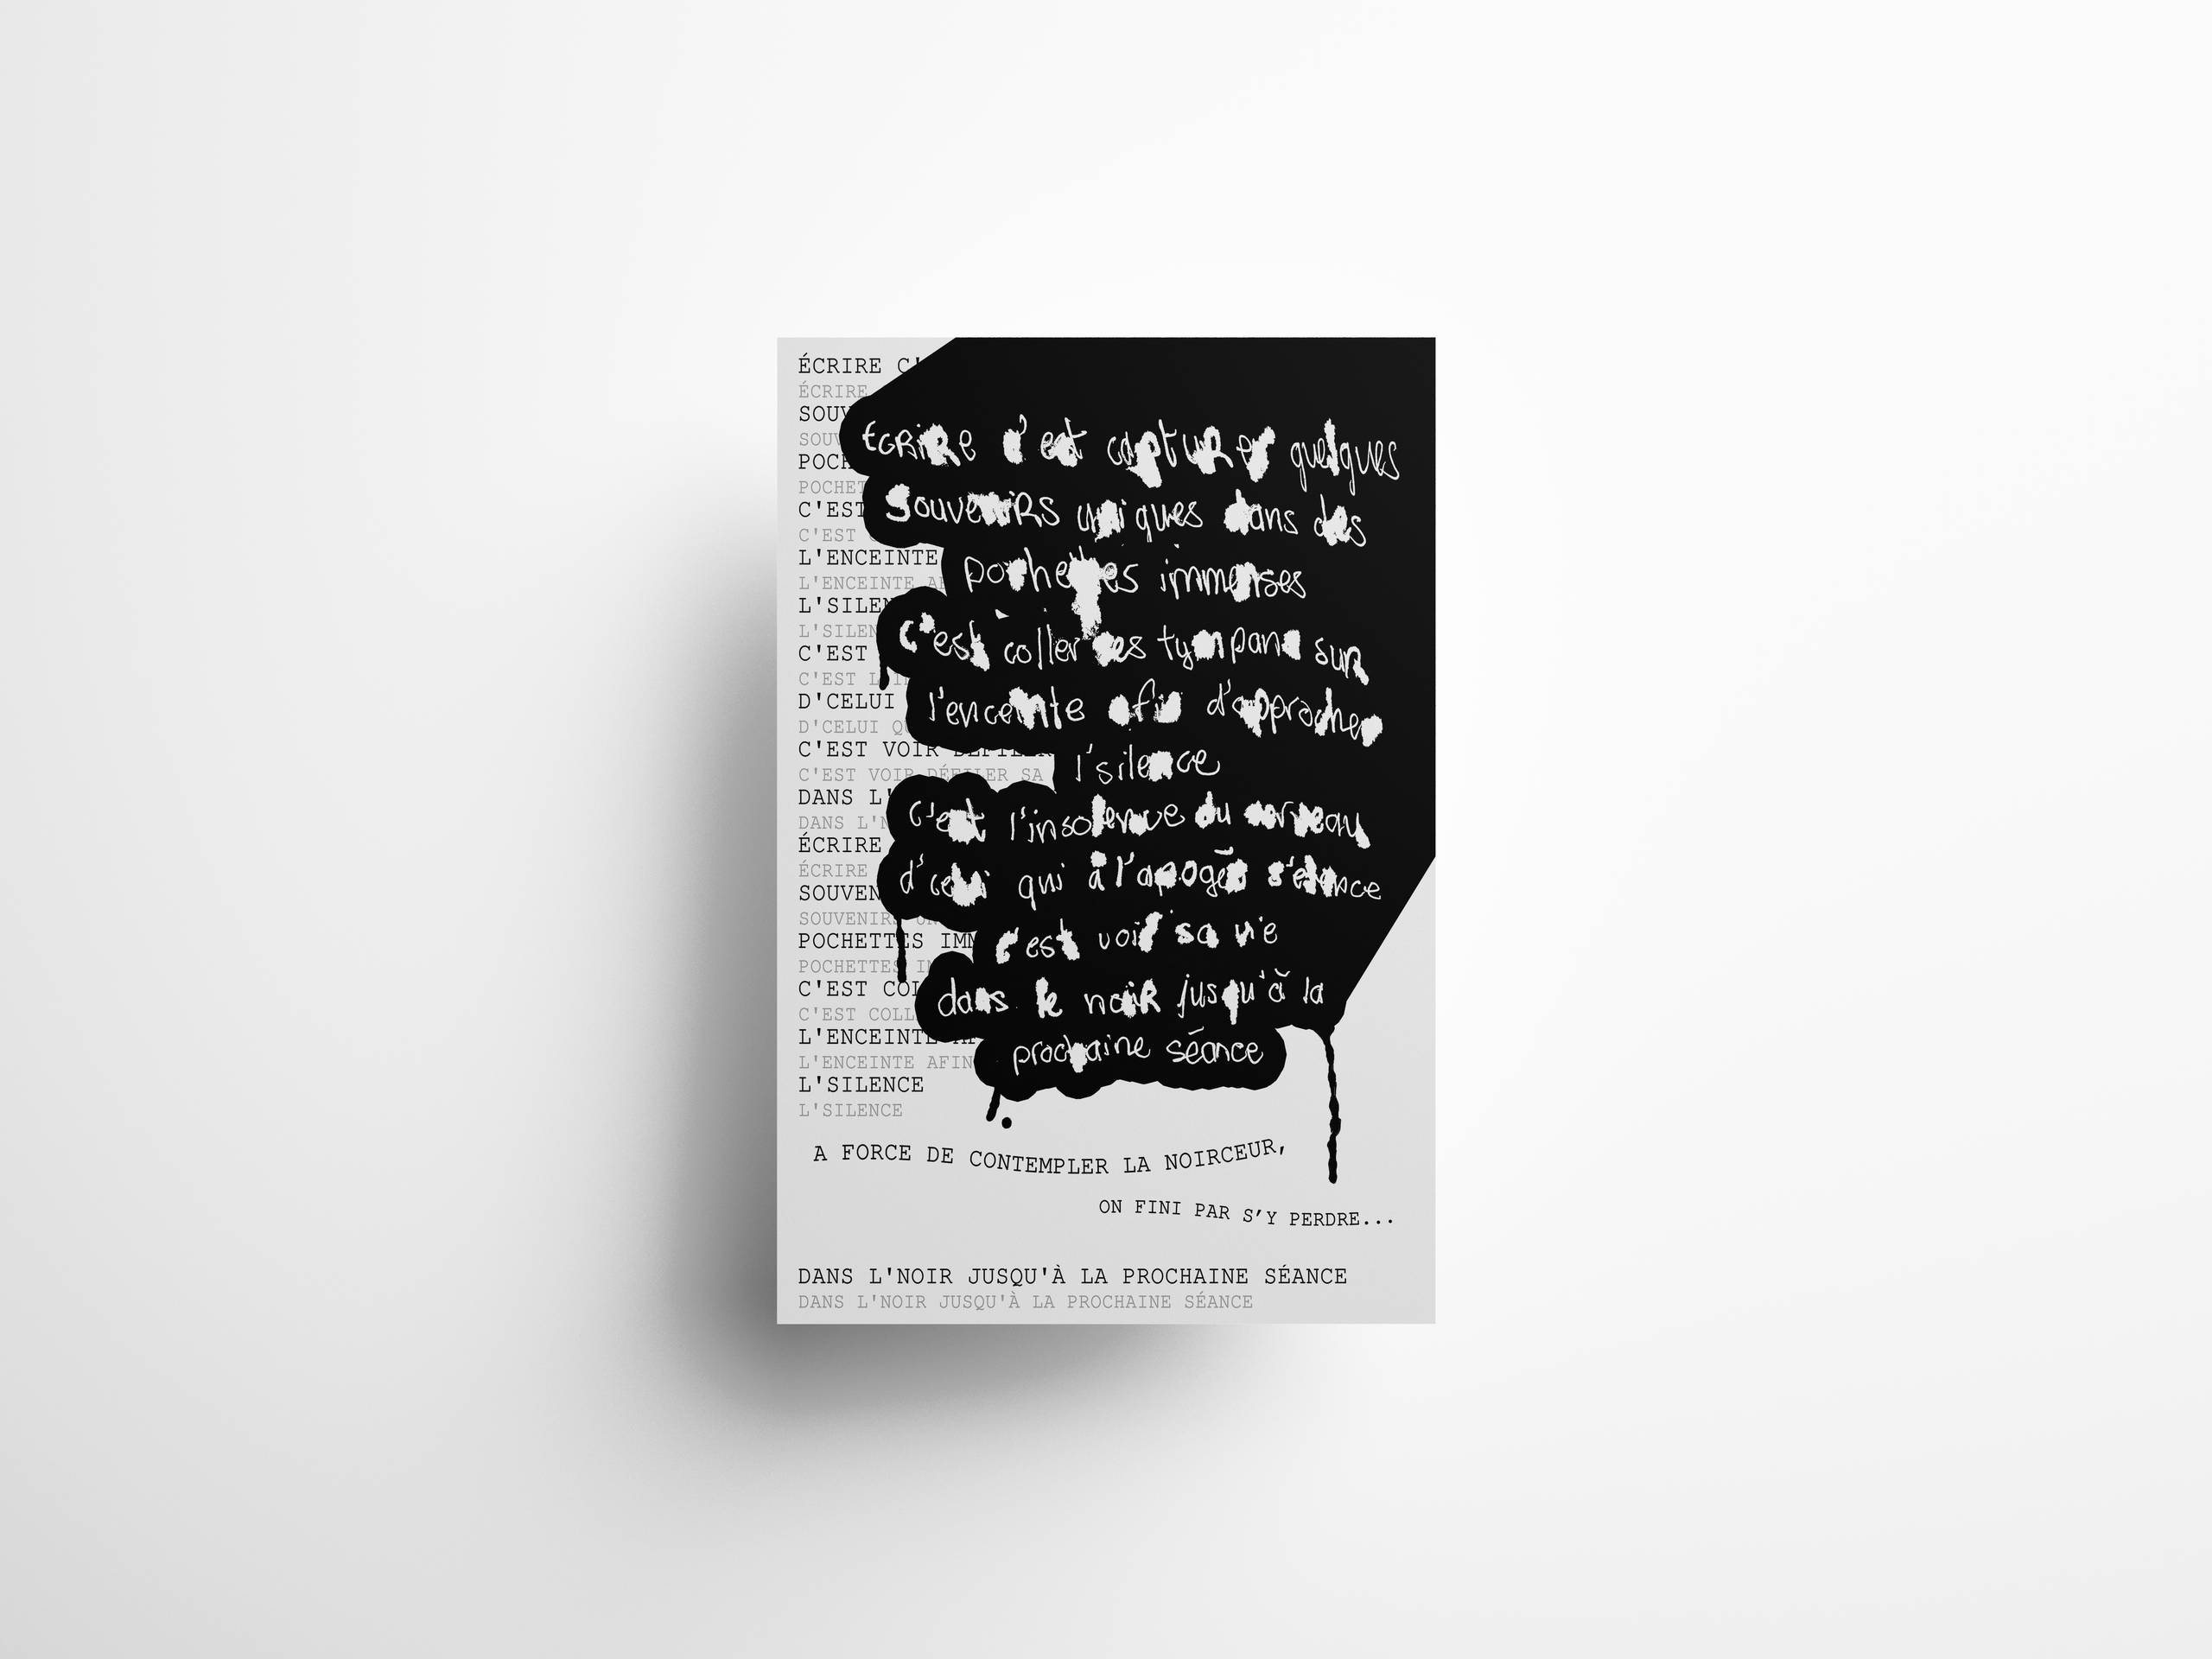 ÉCRIRE C'
ÉCRIRE
SOUV
SOUV
POCH
POCHET
C'EST
C'EST
L'ENCEINTE
L'ENCEINTE A
L'SILEN
L'SILEN
C'EST
C'EST L'I
D'CELUI
D'CELUI Q
C'EST VOIR DÉFILER
C'EST VOIR DÉFILER SA
DANS L'
DANS L'N
ÉCRIRE
ÉCRIRE
SOUVEN
SOUVENIRS
POCHETTES IMM
POCHETTES I
C'EST COL
C'EST COLL
L'ENCEINTE
L'ENCEINTE AFIN
L'SILENCE
L'SILENCE
Ecrire c'est capturer quelques
souvenirs uniques dans des
pochettes immenses
C'est coller ses tympans sur
l'enceinte afin d'approcher
l'silence
C'est l'insolence du
d'celui qui à l'apogée s'élance
C'est voir sa vie
dans le noir jusqu'à la
prochaine séance
A FORCE DE CONTEMPLER LA NOIRCEUR,
ON FINI PAR S'Y PERDRE...
DANS L'NOIR JUSQU'À LA PROCHAINE SÉANCE
DANS L'NOIR JUSQU'À LA PROCHAINE SÉANCE